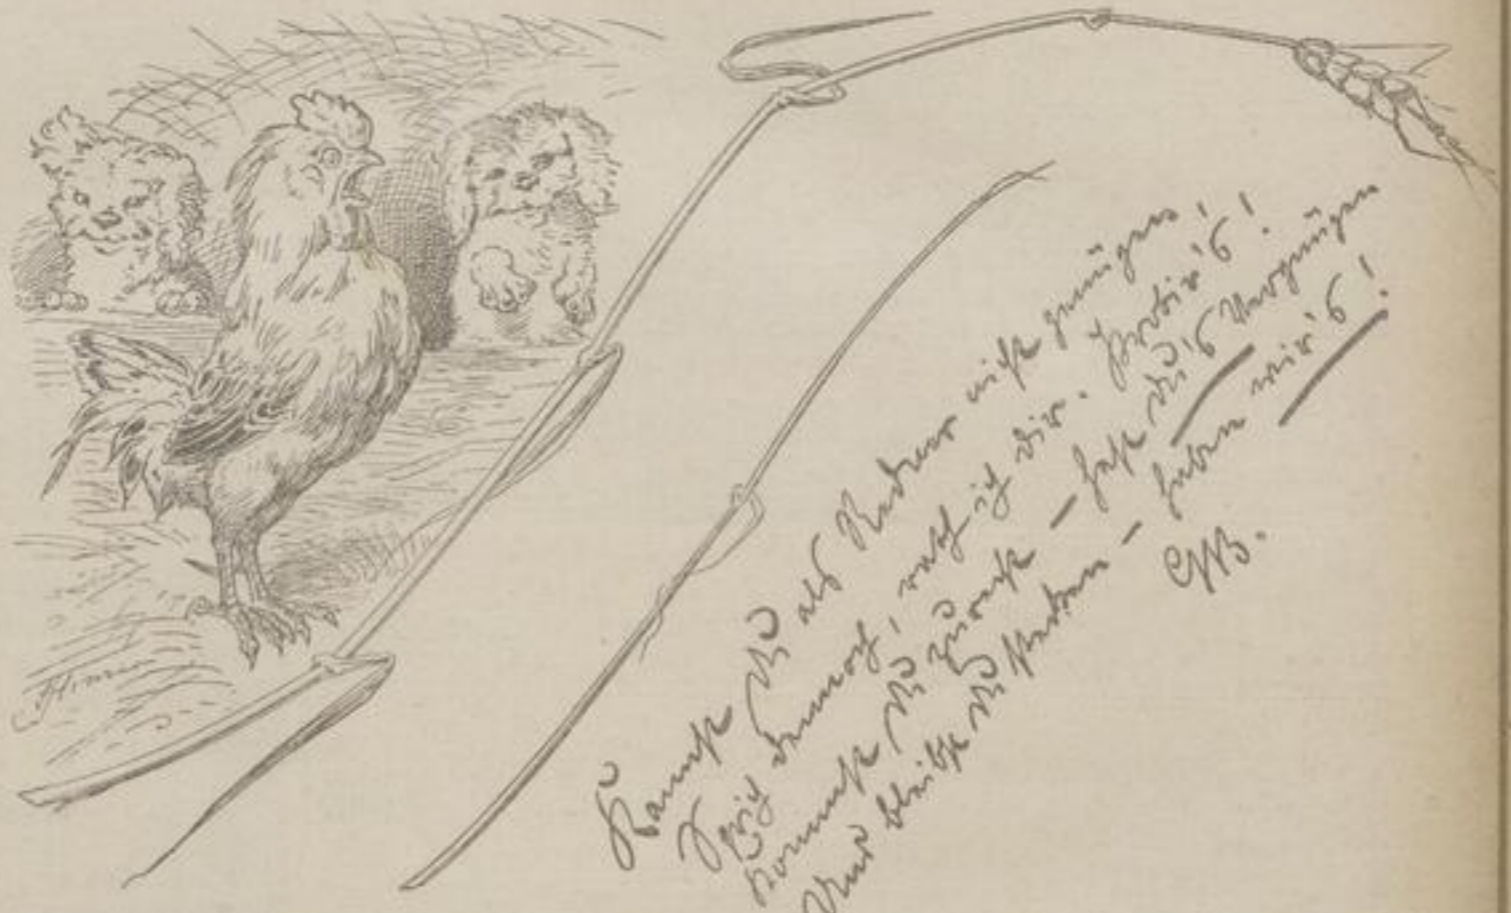 Kannst Du als Redner nicht genügen,
Sprich dennoch, rath ich dir. Probir's!
Kommst Du zurecht – hast Du's Vergnügen
Und bleibst Du stecken – haben wir's!
GB.